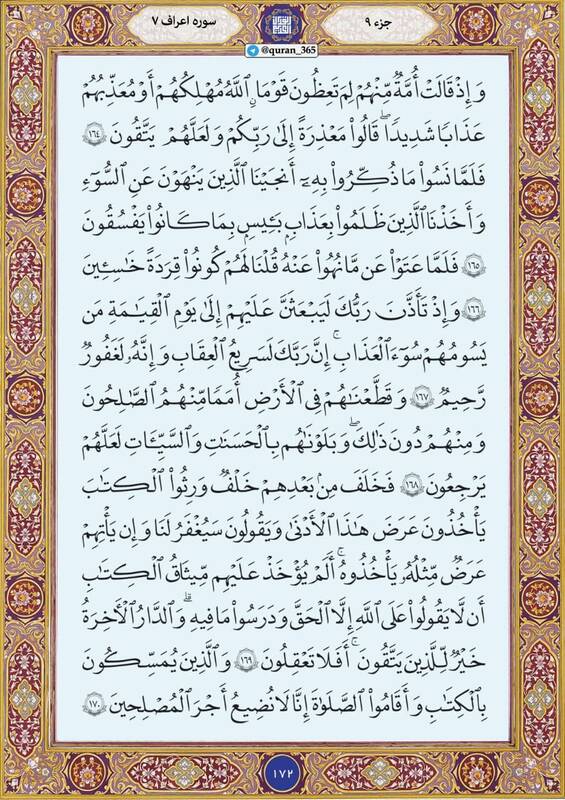 سوره اعراف ۷
جزء ۹
@quran_365
وَإِذْ قَالَتْ أُمَّةٌ مِّنْهُمْ لِمَ تَعِظُونَ قَوْمًا ٱللَّهُ مُهْلِكُهُمْ أَوْ مُعَذِّبُهُمْ
عَذَابًا شَدِيدًا ۖ قَالُوا۟ مَعْذِرَةً إِلَىٰ رَبِّكُمْ وَلَعَلَّهُمْ يَتَّقُونَ ۝١٦٤
فَلَمَّا نَسُوا۟ مَا ذُكِّرُوا۟ بِهِۦٓ أَنجَيْنَا ٱلَّذِينَ يَنْهَوْنَ عَنِ ٱلسُّوٓءِ
وَأَخَذْنَا ٱلَّذِينَ ظَلَمُوا۟ بِعَذَابٍۭ بَـِٔيسٍۭ بِمَا كَانُوا۟ يَفْسُقُونَ
۝١٦٥ فَلَمَّا عَتَوْا۟ عَن مَّا نُهُوا۟ عَنْهُ قُلْنَا لَهُمْ كُونُوا۟ قِرَدَةً خَـٰسِـِٔينَ
۝١٦٦ وَإِذْ تَأَذَّنَ رَبُّكَ لَيَبْعَثَنَّ عَلَيْهِمْ إِلَىٰ يَوْمِ ٱلْقِيَـٰمَةِ مَن
يَسُومُهُمْ سُوٓءَ ٱلْعَذَابِ ۗ إِنَّ رَبَّكَ لَسَرِيعُ ٱلْعِقَابِ ۖ وَإِنَّهُۥ لَغَفُورٌ
رَّحِيمٌ ۝١٦٧ وَقَطَّعْنَـٰهُمْ فِى ٱلْأَرْضِ أُمَمًا ۖ مِّنْهُمُ ٱلصَّـٰلِحُونَ
وَمِنْهُمْ دُونَ ذَٰلِكَ ۖ وَبَلَوْنَـٰهُم بِٱلْحَسَنَـٰتِ وَٱلسَّيِّـَٔاتِ لَعَلَّهُمْ
يَرْجِعُونَ ۝١٦٨ فَخَلَفَ مِنۢ بَعْدِهِمْ خَلْفٌ وَرِثُوا۟ ٱلْكِتَـٰبَ
يَأْخُذُونَ عَرَضَ هَـٰذَا ٱلْأَدْنَىٰ وَيَقُولُونَ سَيُغْفَرُ لَنَا وَإِن يَأْتِهِمْ
عَرَضٌ مِّثْلُهُۥ يَأْخُذُوهُ ۚ أَلَمْ يُؤْخَذْ عَلَيْهِم مِّيثَـٰقُ ٱلْكِتَـٰبِ
أَن لَّا يَقُولُوا۟ عَلَى ٱللَّهِ إِلَّا ٱلْحَقَّ وَدَرَسُوا۟ مَا فِيهِ ۗ وَٱلدَّارُ ٱلْـَٔاخِرَةُ
خَيْرٌ لِّلَّذِينَ يَتَّقُونَ ۗ أَفَلَا تَعْقِلُونَ ۝١٦٩ وَٱلَّذِينَ يُمَسِّكُونَ
بِٱلْكِتَـٰبِ وَأَقَامُوا۟ ٱلصَّلَوٰةَ إِنَّا لَا نُضِيعُ أَجْرَ ٱلْمُصْلِحِينَ ۝١٧٠
۱۷۲